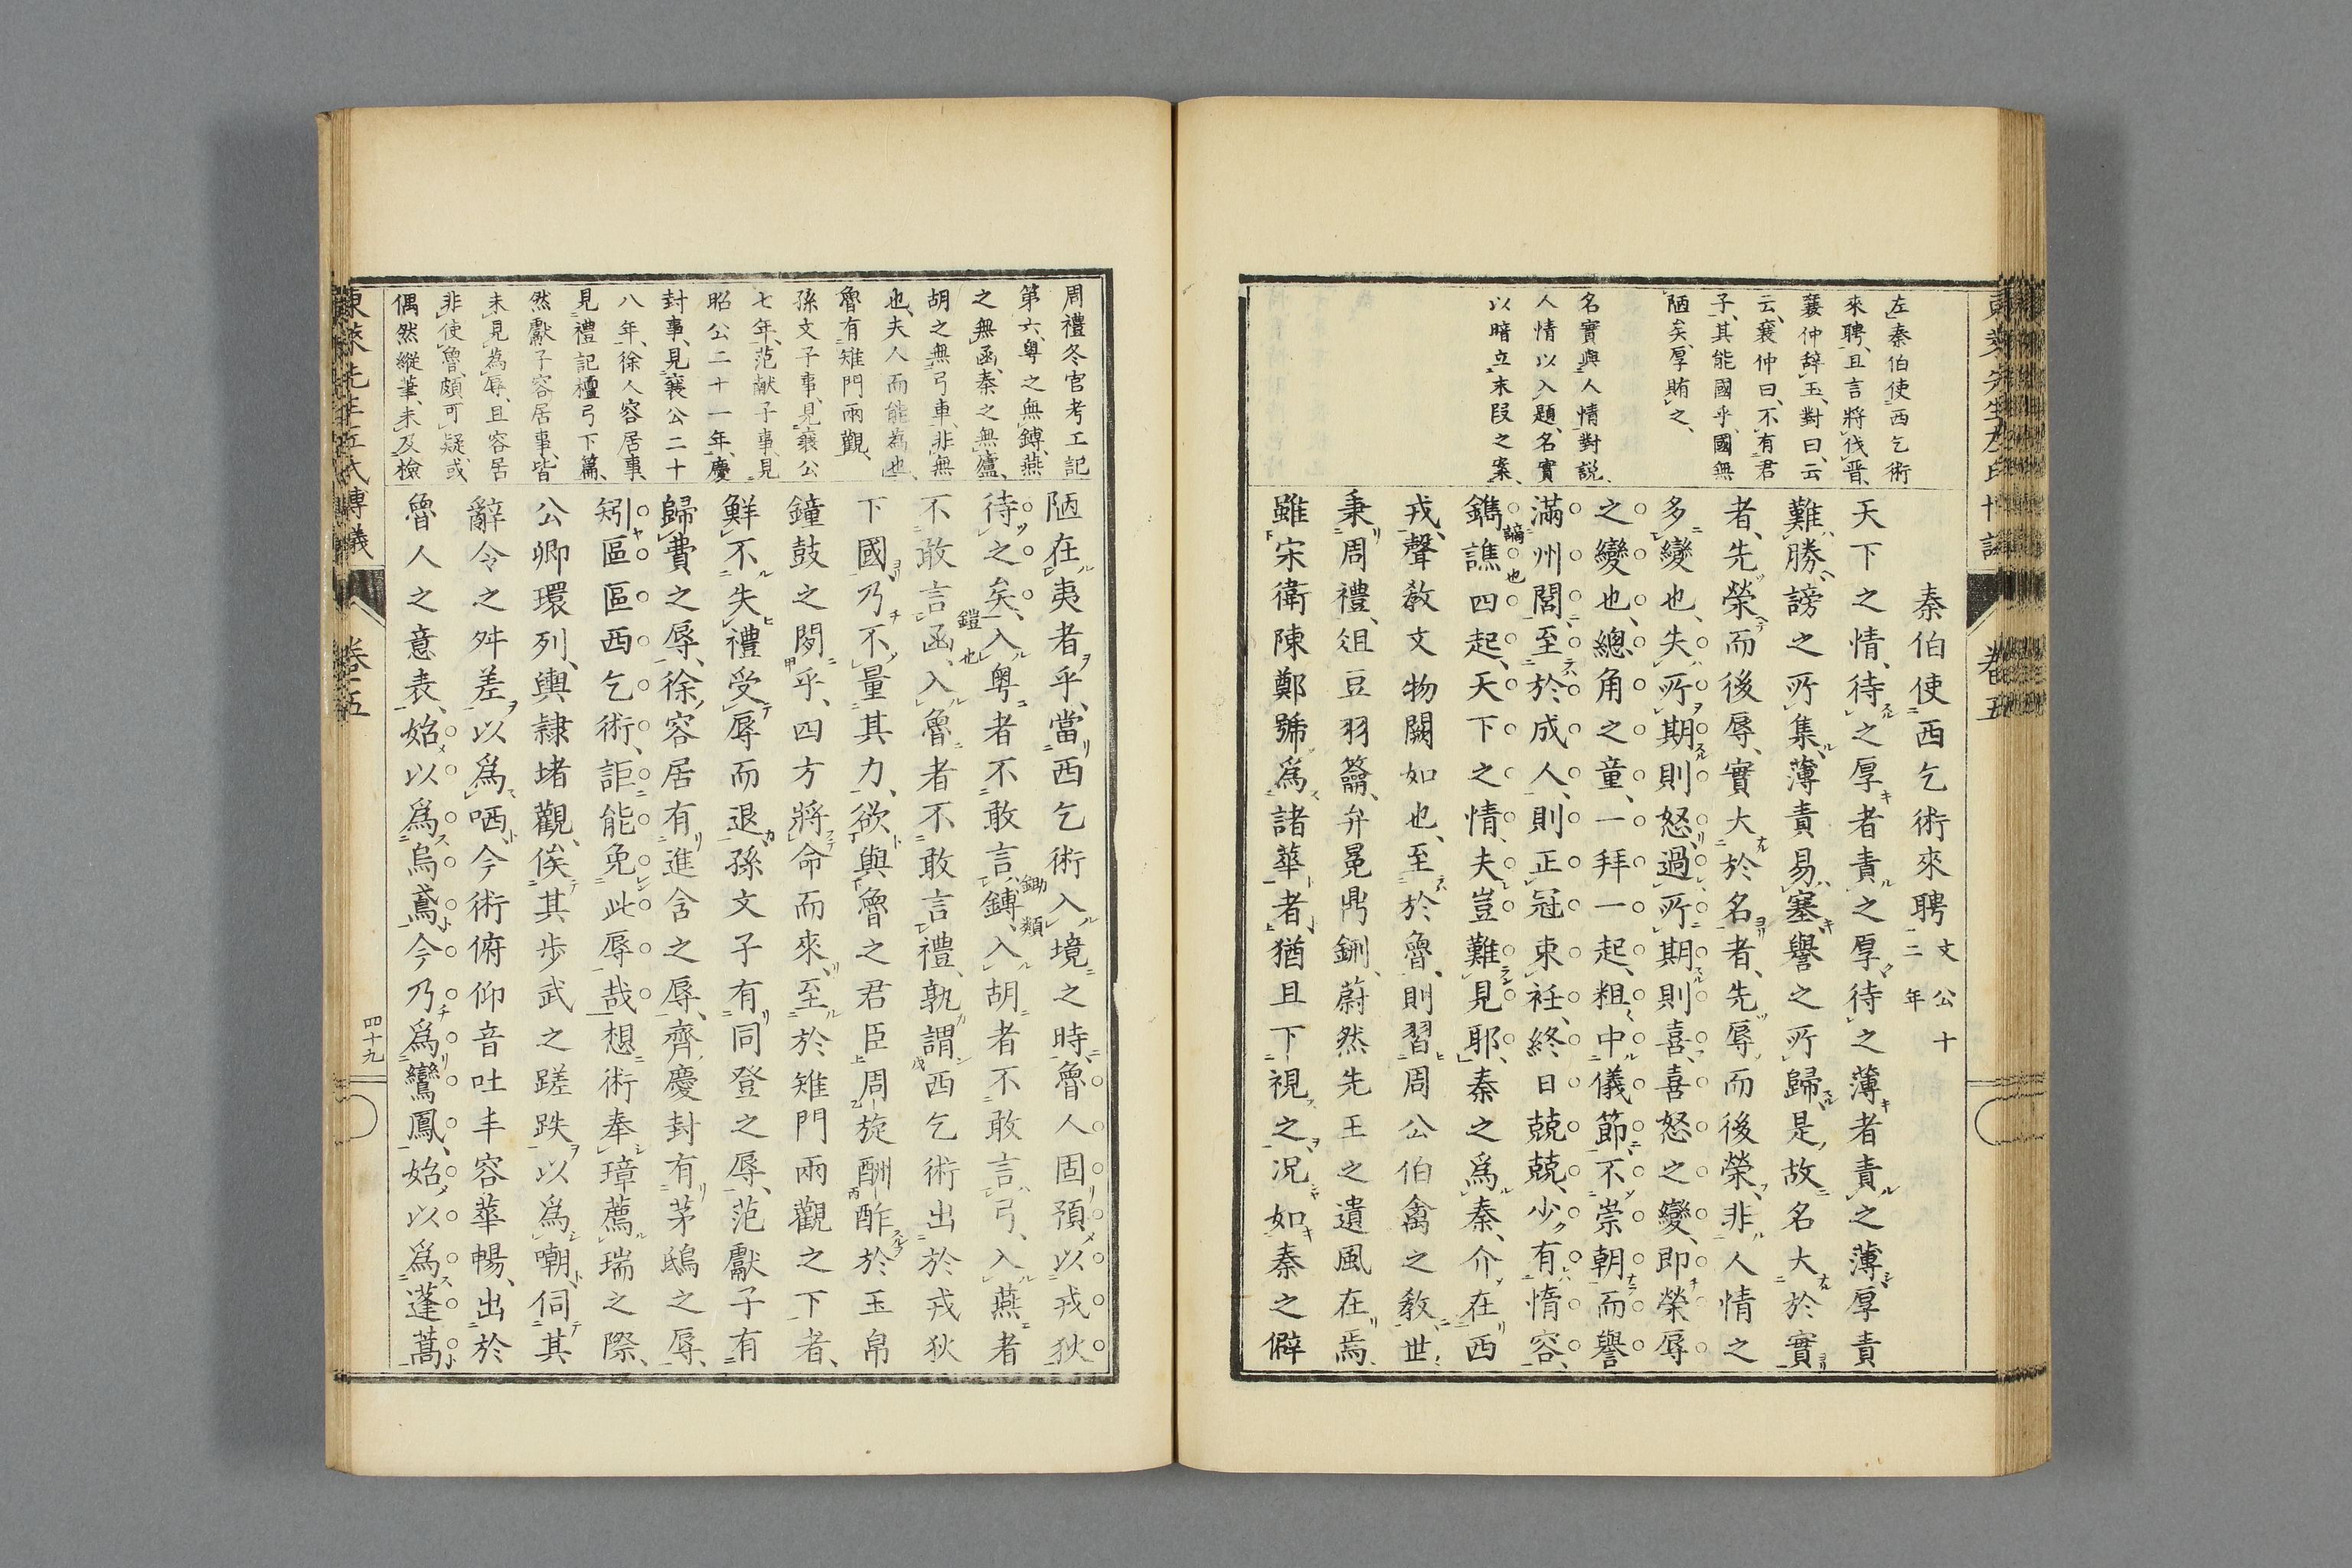 左秦伯使西乞術
來聘、且言將伐晋、
襄仲辞玉、對曰、云
云、襄仲曰、不有君
子、其能國乎、國無
陋矣、厚賄之、
名實與人情對説、
人情以入題、名實
以暗立末段之案、
秦伯使西乞術來聘 文公十二年
天下之情、待之厚者責之厚、待之薄者責之薄、厚責
難勝、謗之所集、薄責易塞、譽之所歸、是故名大於實
者、先榮而後辱、實大於名者、先辱而後榮、非人情之
多變也、失所期則怒、過所期則喜、喜怒之變、即榮辱
之變也、總角之童、一拜一起、粗中儀節、不崇朝而譽
滿州閭、至於成人、則正冠束衽、終日兢兢、少有惰容、
鐫譙四起、天下之情、夫豈難見耶、秦之爲秦、介在西
謫也
戎、聲教文物闕如也、至於魯、則習周公伯禽之教、世
秉周禮、俎豆羽籥、弁冕鼎鉶、蔚然先王之遺風在焉、
雖宋衛陳鄭號爲諸華者、猶且下視之、况如秦之僻
周禮冬官考工記
第六、粤之無鎛、燕
之無函、秦之無廬、
胡之無弓車、非無
也、夫人而能為也、
魯有雉門兩觀、
孫文子事、見襄公
七年、范献子事、見
昭公二十一年、慶
封事、見襄公二十
八年、徐人容居事、
見禮記檀弓下篇、
然獻子容居事、皆
未見為辱、且容居
非使魯、頗可疑、或
偶然縱筆、未及檢
陋在夷者乎、當西乞術入境之時、魯人固預以戎狄
待之矣、入粤者不敢言鎛、入胡者不敢言弓、入燕者
鋤類
不敢言函、入魯者不敢言禮、孰謂西乞術出於戎狄
鎧也
下國、乃不量其力、欲與魯之君臣周旋酬酢於玉帛
鐘鼓之間乎、四方將命而來、至於雉門兩觀之下者、
鮮不失禮受辱而退、孫文子有同登之辱、范獻子有
歸費之辱、徐容居有進含之辱、齊慶封有茅鴟之辱、
矧區區西乞術、詎能免此辱哉、想術奉璋薦瑞之際、
公卿環列、輿隷堵觀、俟其歩武之蹉跌以爲嘲、伺其
辭令之舛差以爲哂、今術俯仰音吐丰容華暢、出於
魯人之意表、始以爲烏鳶、今乃爲鸞鳳、始以爲蓬蒿
卷五
四十九